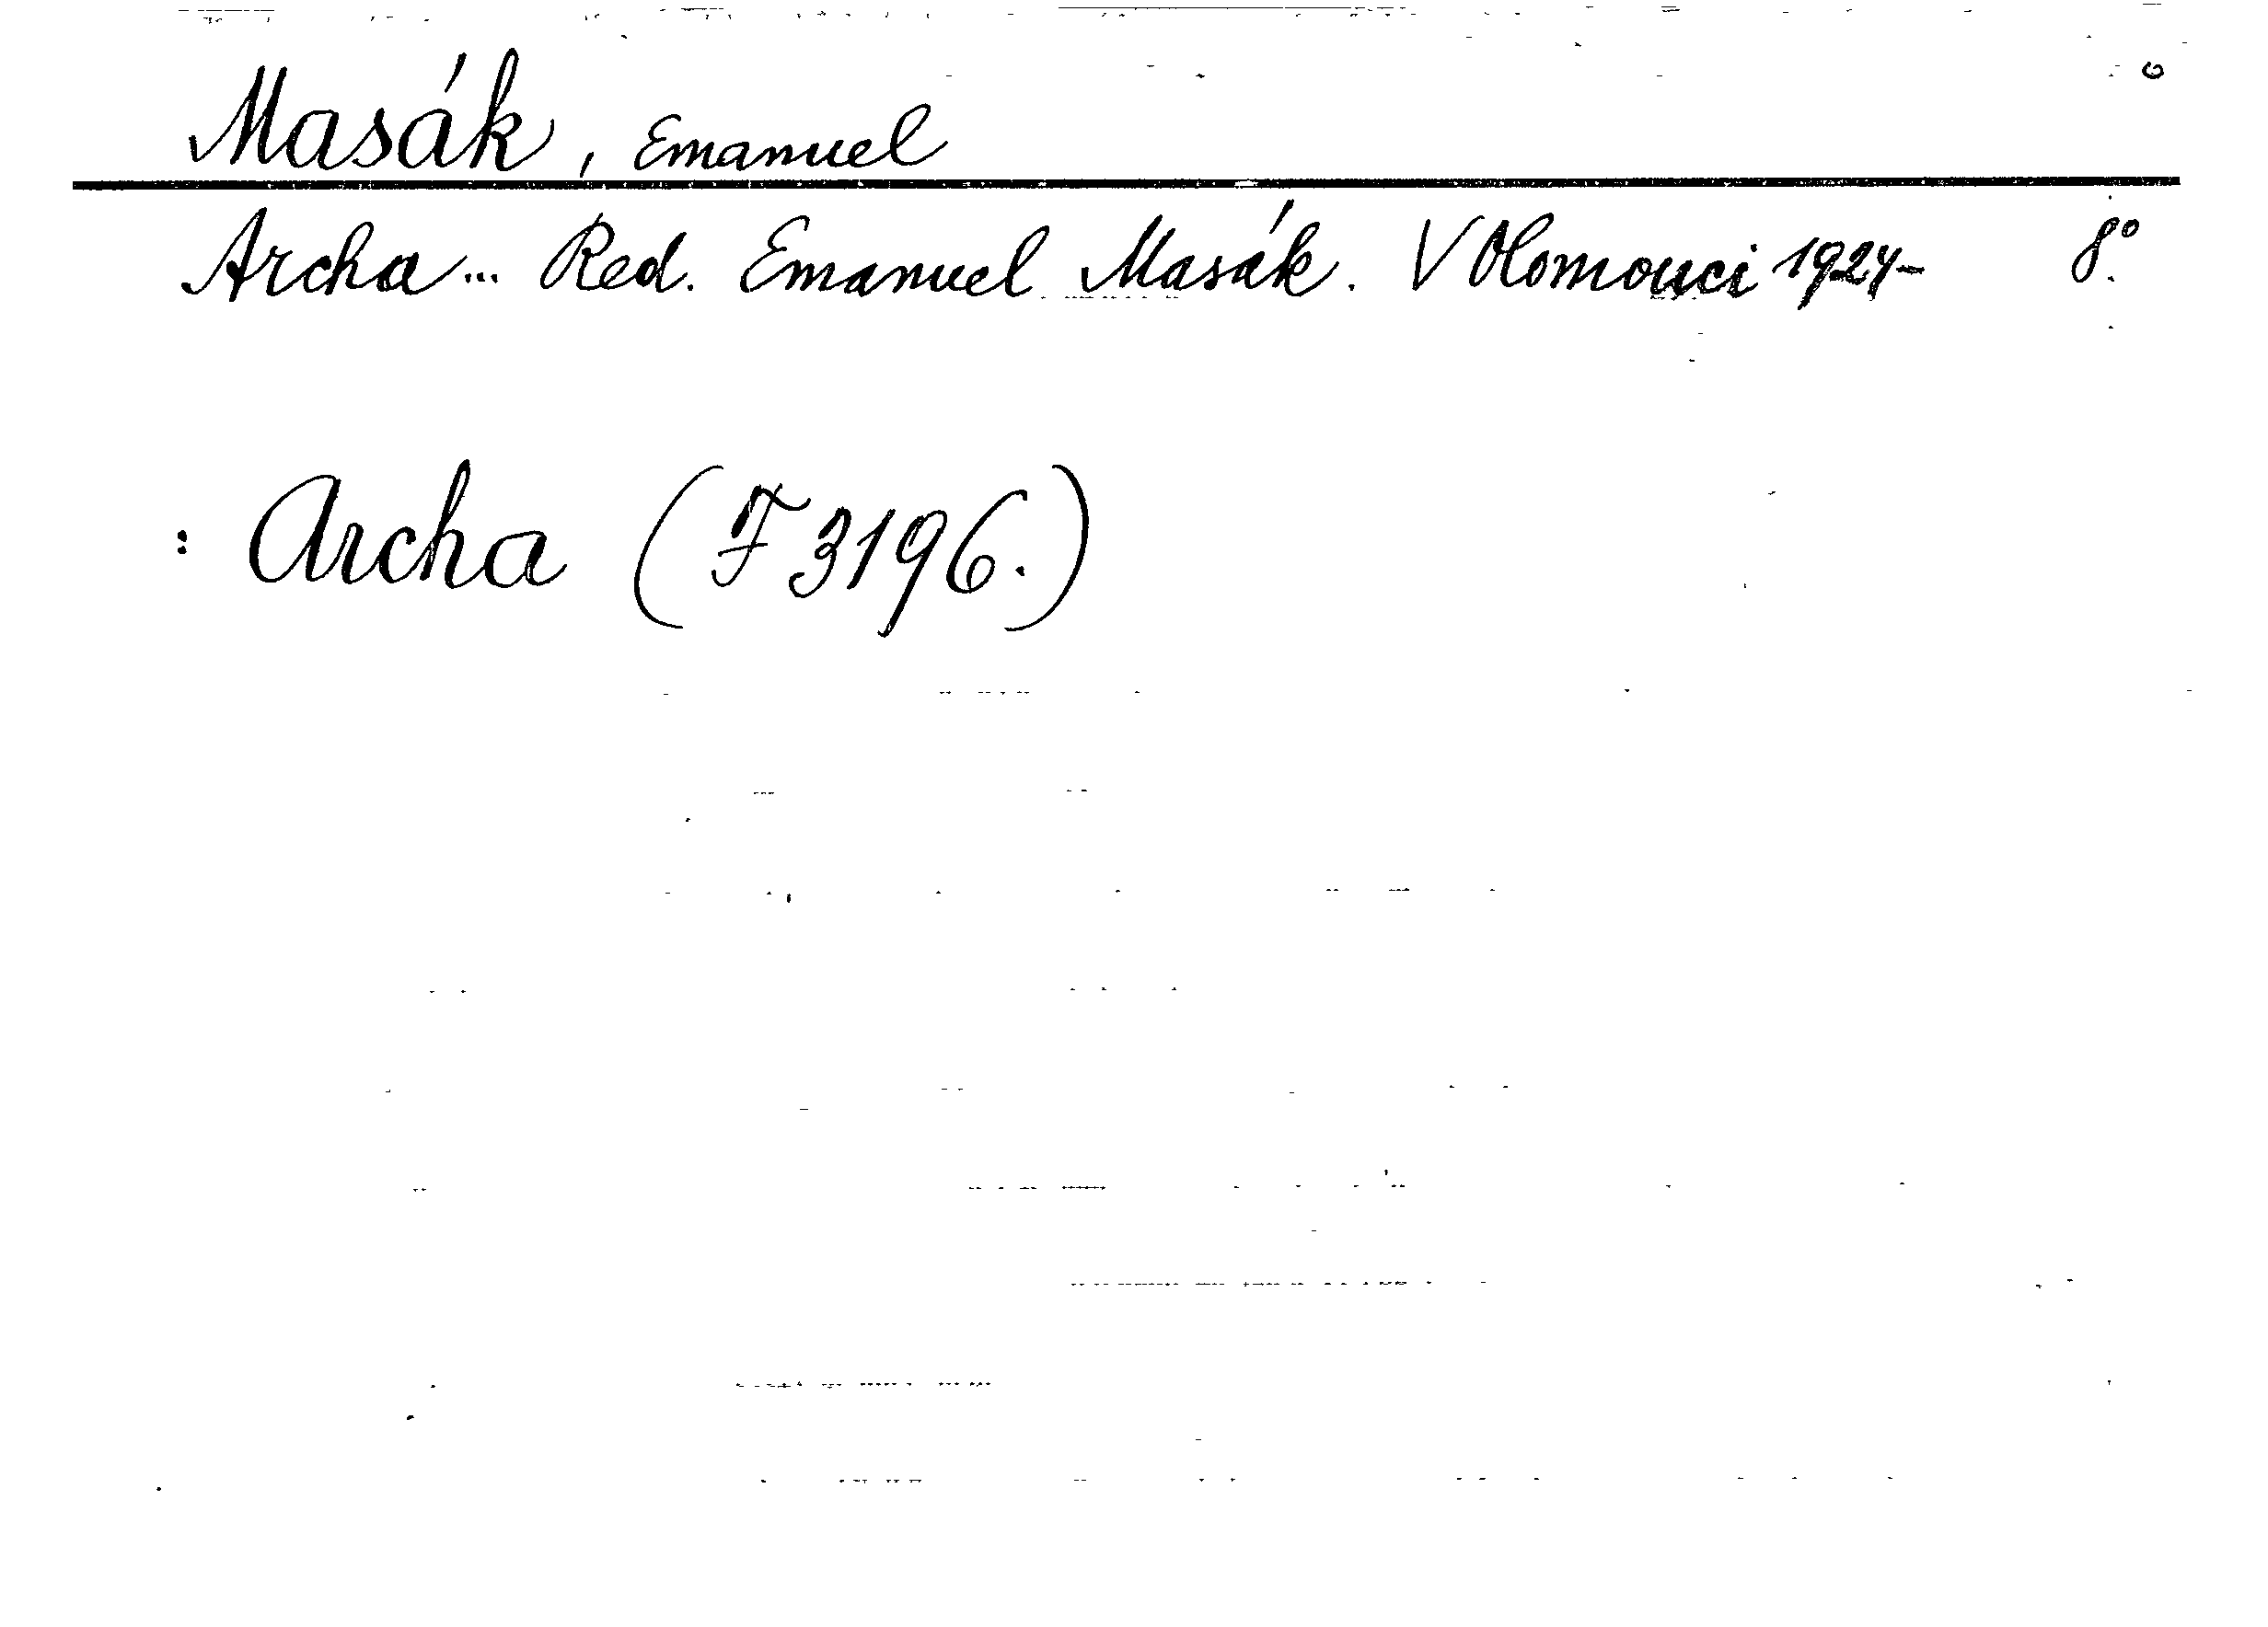 Masák, Emanuel
Archa... Red. Emanuel Masák. V Olomouci 1924- 8°
: Archa (F 3196.)